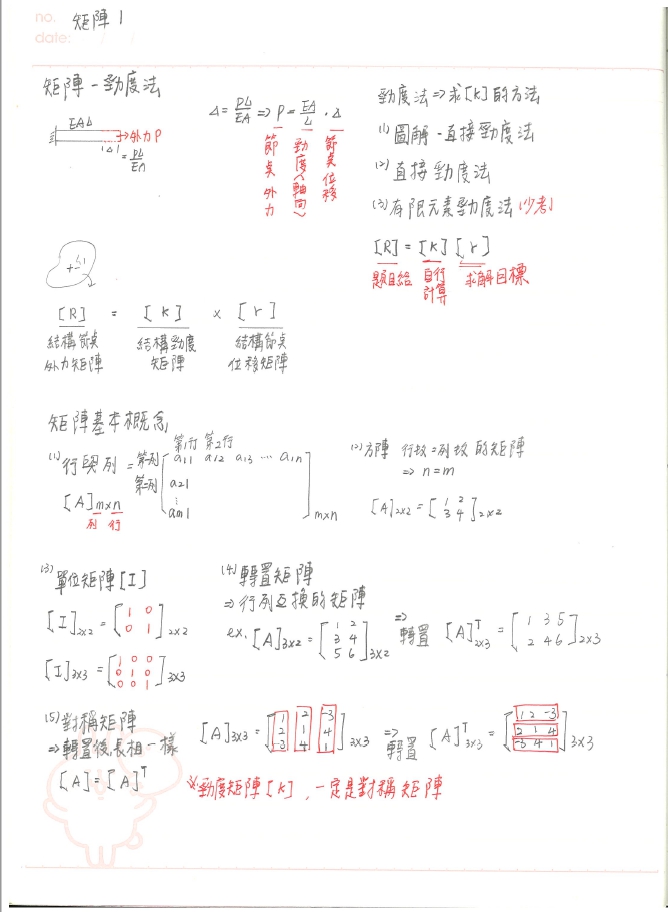 no. 矩陣 1
date:
矩陣-勁度法
EAL
→外力 P
|Δ|
= PL/EA
Δ = PL/EA ⇒ P = EA/L · Δ
節点外力
勁度(軸向)
節点位移
勁度法⇒求[K]的方法
(1) 圖解-直接勁度法
(2) 直接勁度法
(3) 有限元素勁度法(少考)
[R] = [K] [r]
題目給 自行計算 求解目標
[R] = [K] x [r]
結構節点 結構勁度 結構節点
外力矩陣 矩陣 位移矩陣
矩陣基本概念
第1行 第2行
(1) 行與列 = 第一列 [ a11 a12 a13 ... a1n
第二列 a21
⋮
am1 ] mxn
[A]mxn
列 行
(2) 方陣 行數=列數 的矩陣
⇒ n=m
[A]2x2 = [1 2
3 4]2x2
(3) 單位矩陣[I]
[I]2x2 = [1 0
0 1]2x2
[I]3x3 = [1 0 0
0 1 0
0 0 1]3x3
(4) 轉置矩陣
⇒ 行列互換的矩陣
ex. [A]3x2 = [1 2
3 4
5 6]3x2
⇒ 轉置 [A]T2x3 = [1 3 5
2 4 6]2x3
(5) 對稱矩陣
⇒轉置後長相一樣
[A]=[A]T
[A]3x3 = [1 2 -3
2 1 4
-3 4 1]3x3
⇒ 轉置 [A]T3x3 = [1 2 -3
2 1 4
-3 4 1]3x3
※勁度矩陣[K],一定是對稱矩陣